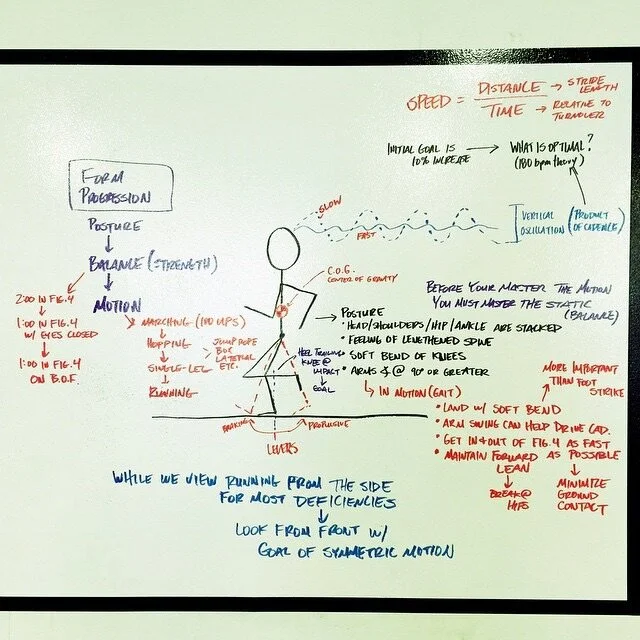 SPEED = DISTANCE → STRIDE LENGTH
TIME → RELATIVE TO TURNOVER
INITIAL GOAL IS 10% INCREASE → WHAT IS OPTIMAL?
(180 bpm theory)
FORM
PROGRESSION
POSTURE
BALANCE (=STRENGTH)
MOTION
2:00 IN FIG. 4
1:00 IN FIG. 4
W/ EYES CLOSED
1:00 IN FIG. 4
ON B.O.F.
MARCHING (100 UPS)
HOPPING
SINGLE-LEG
RUNNING
JUMP ROPE
BOX
LATERAL
ETC.
SLOW
FAST
VERTICAL
OSCILLATION
(PRODUCT
OF CADENCE)
C.O.G.
CENTER OF GRAVITY
BEFORE YOUR MASTER THE MOTION
YOU MUST MASTER THE STATIC
(BALANCE)
→ POSTURE
• HEAD/SHOULDERS/HIP/ANKLE ARE STACKED
• FEELING OF LENGTHENED SPINE
• SOFT BEND OF KNEES
• ARMS @ 90° OR GREATER
KNEE @
IMPACT
GOAL
BRAKING
PROPULSIVE
LEVERS
IN MOTION (GAIT)
• LAND W/ SOFT BEND
• ARM SWING CAN HELP DRIVE CAD.
• GET IN & OUT OF FIG. 4 AS FAST
AS POSSIBLE
• MAINTAIN FORWARD
LEAN
BREAK @
HIPS
MORE IMPORTANT
THAN FOOT
STRIKE
MINIMIZE
GROUND
CONTACT
WHILE WE VIEW RUNNING FROM THE SIDE
FOR MOST DEFICIENCIES
LOOK FROM FRONT W/
GOAL OF SYMMETRIC MOTION